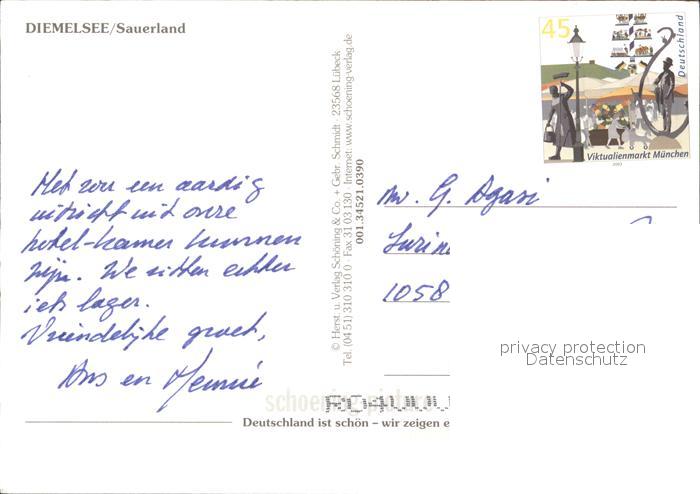 DIEMELSEE/Sauerland
45
Deutschland
Viktualienmarkt München
2003
Het zou een aardig
uitzicht uit onze
hotel-kamer kunnen
zijn. We zitten echter
iets lager.
Vriendelijke groet,
Ans en Mennie
© Herst. u. Verlag Schöning & Co. + Gebr. Schmidt · 23568 Lübeck
Tel. (04 51) 310 310 0 · Fax 31 03 130 · Internet: www.schoening-verlag.de
001.34521.0390
G. Agasi
1058
privacy protection
Datenschutz
Deutschland ist schön – wir zeigen e